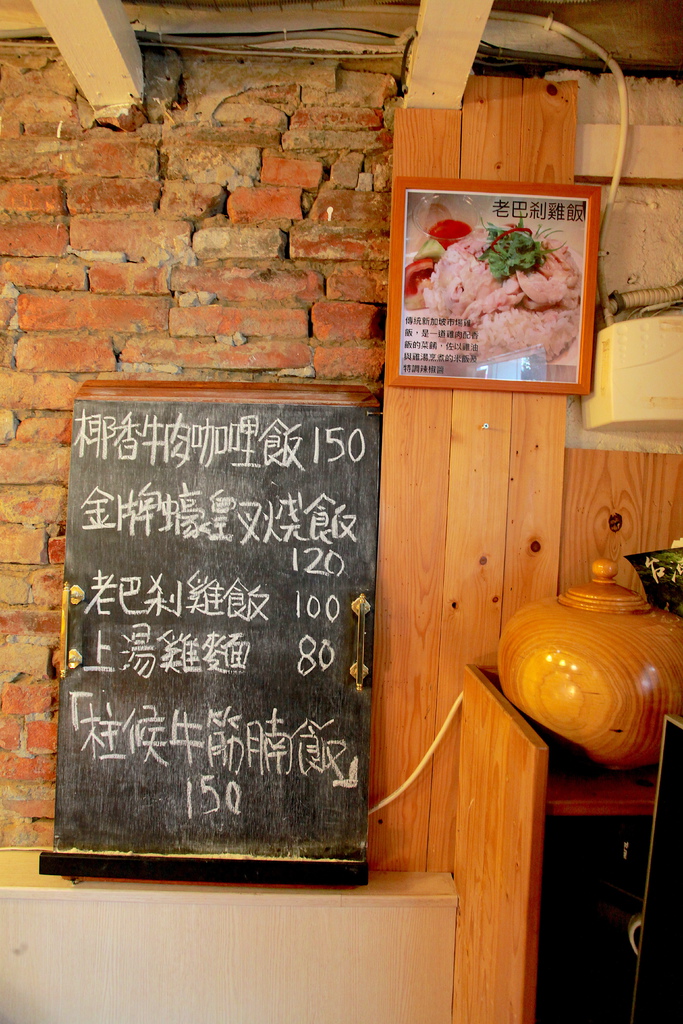 老巴剎雞飯
傳統新加坡市場雞
飯，是一道雞肉配香
飯的菜餚，佐以雞油
與雞湯烹煮的米飯及
特調辣椒醬
椰香牛肉咖哩飯 150
金牌蠔皇叉燒飯
120
老巴剎雞飯 100
上湯雞麵 80
「柱候牛筋腩飯」
150